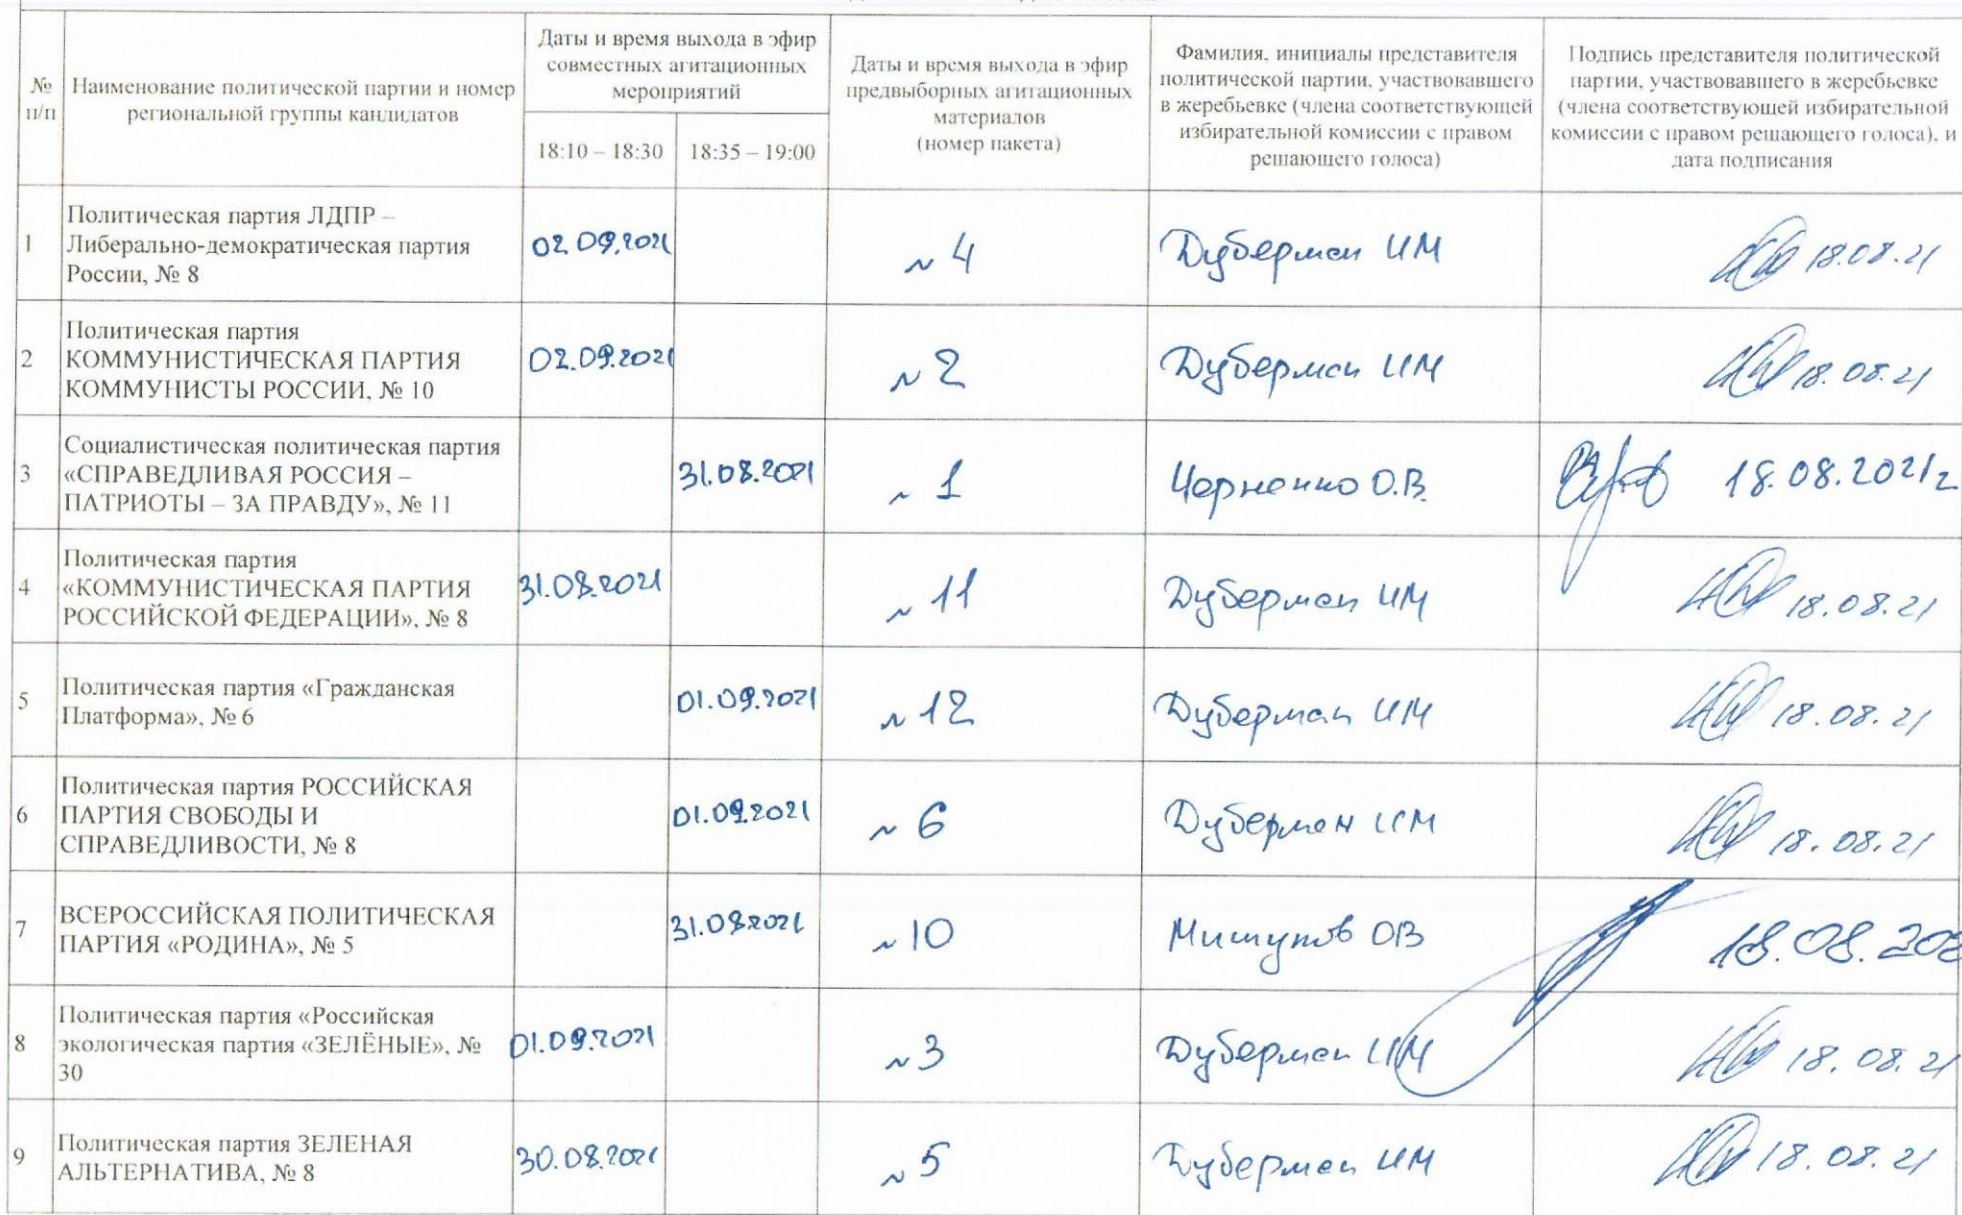 № п/п
Наименование политической партии и номер
региональной группы кандидатов
Даты и время выхода в эфир
совместных агитационных
мероприятий
18:10 – 18:30
18:35 – 19:00
Даты и время выхода в эфир
предвыборных агитационных
материалов
(номер пакета)
Фамилия, инициалы представителя
политической партии, участвовавшего
в жеребьевке (члена соответствующей
избирательной комиссии с правом
решающего голоса)
Подпись представителя политической
партии, участвовавшего в жеребьевке
(члена соответствующей избирательной
комиссии с правом решающего голоса), и
дата подписания
1
Политическая партия ЛДПР –
Либерально-демократическая партия
России, № 8
02.09.2021
№ 4
Дуберман ИМ
18.08.21
2
Политическая партия
КОММУНИСТИЧЕСКАЯ ПАРТИЯ
КОММУНИСТЫ РОССИИ, № 10
02.09.2021
№ 2
Дуберман ИМ
18.08.21
3
Социалистическая политическая партия
«СПРАВЕДЛИВАЯ РОССИЯ –
ПАТРИОТЫ – ЗА ПРАВДУ», № 11
31.08.2021
№ 1
Черненко О.В.
18.08.2021г
4
Политическая партия
«КОММУНИСТИЧЕСКАЯ ПАРТИЯ
РОССИЙСКОЙ ФЕДЕРАЦИИ», № 8
31.08.2021
№ 11
Дуберман ИМ
18.08.21
5
Политическая партия «Гражданская
Платформа», № 6
01.09.2021
№ 12
Дуберман ИМ
18.08.21
6
Политическая партия РОССИЙСКАЯ
ПАРТИЯ СВОБОДЫ И
СПРАВЕДЛИВОСТИ, № 8
01.09.2021
№ 6
Дуберман ИМ
18.08.21
7
ВСЕРОССИЙСКАЯ ПОЛИТИЧЕСКАЯ
ПАРТИЯ «РОДИНА», № 5
31.08.2021
№ 10
Мишунов ОВ
18.08.202
8
Политическая партия «Российская
экологическая партия «ЗЕЛЁНЫЕ», №
30
01.09.2021
№ 3
Дуберман ИМ
18.08.21
9
Политическая партия ЗЕЛЕНАЯ
АЛЬТЕРНАТИВА, № 8
30.08.2021
№ 5
Дуберман ИМ
18.08.21